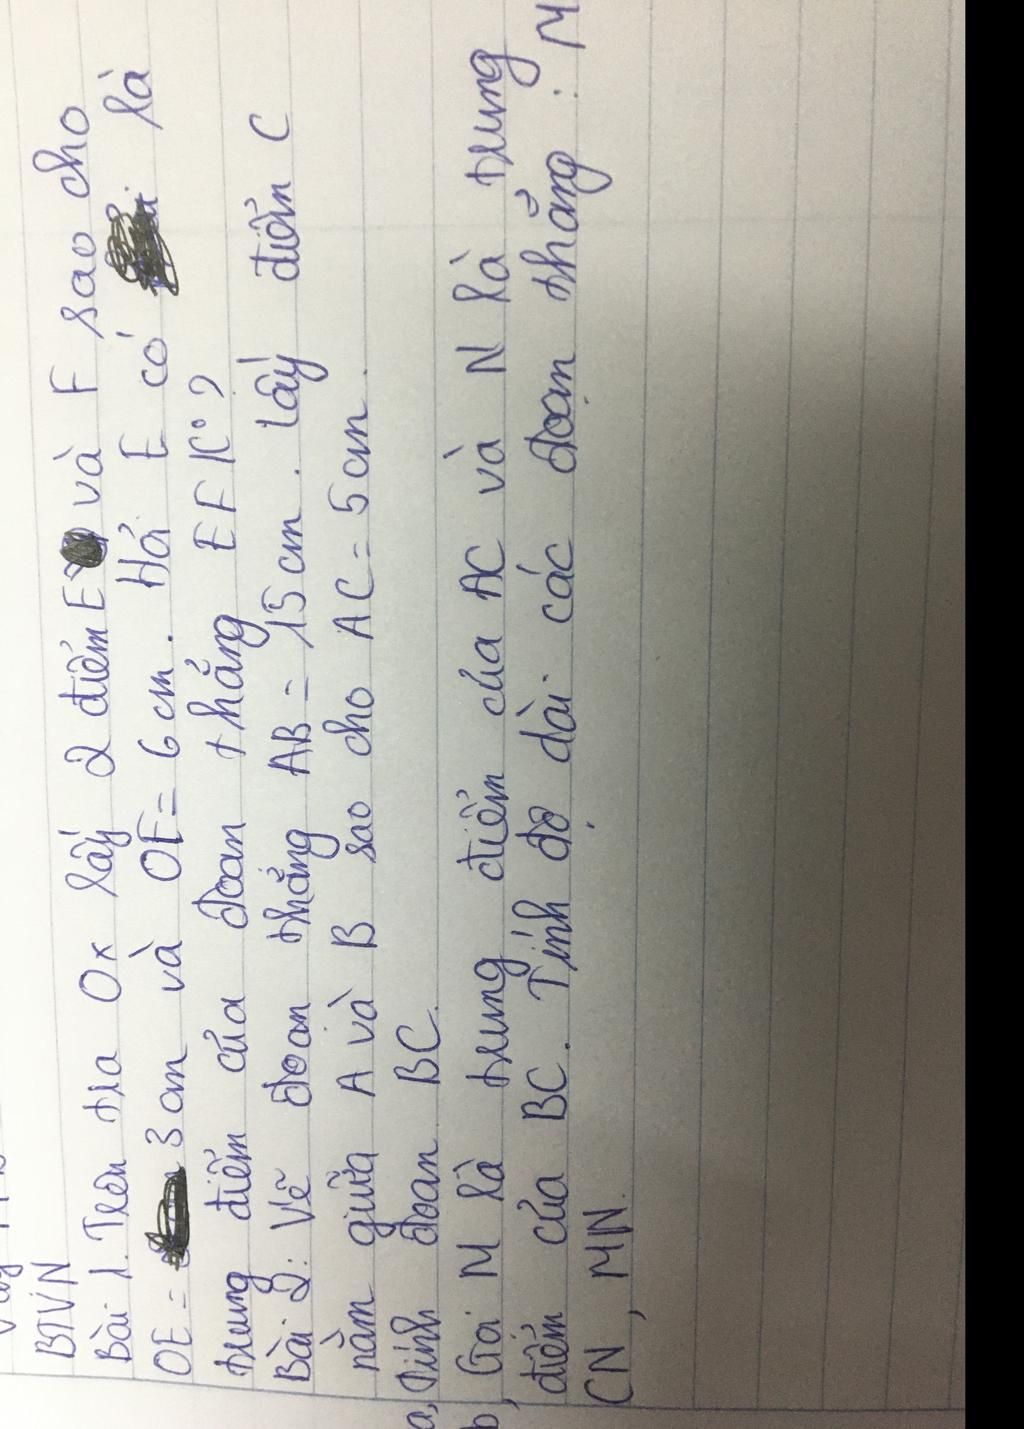 BTVN
Bài 1. Trên tia Ox lấy 2 điểm E và F sao cho
OE = 3 cm và OF = 6 cm. Hỏi E có là
trung điểm của đoạn thẳng EF K°?
Bài 2: Vẽ đoạn thẳng AB = 15 cm. Lấy điểm C
nằm giữa A và B sao cho AC = 5 cm.
a, Tính đoạn BC.
b, Gọi M là trung điểm của AC và N là trung
điểm của BC. Tính độ dài các đoạn thẳng: M
CN, MN.